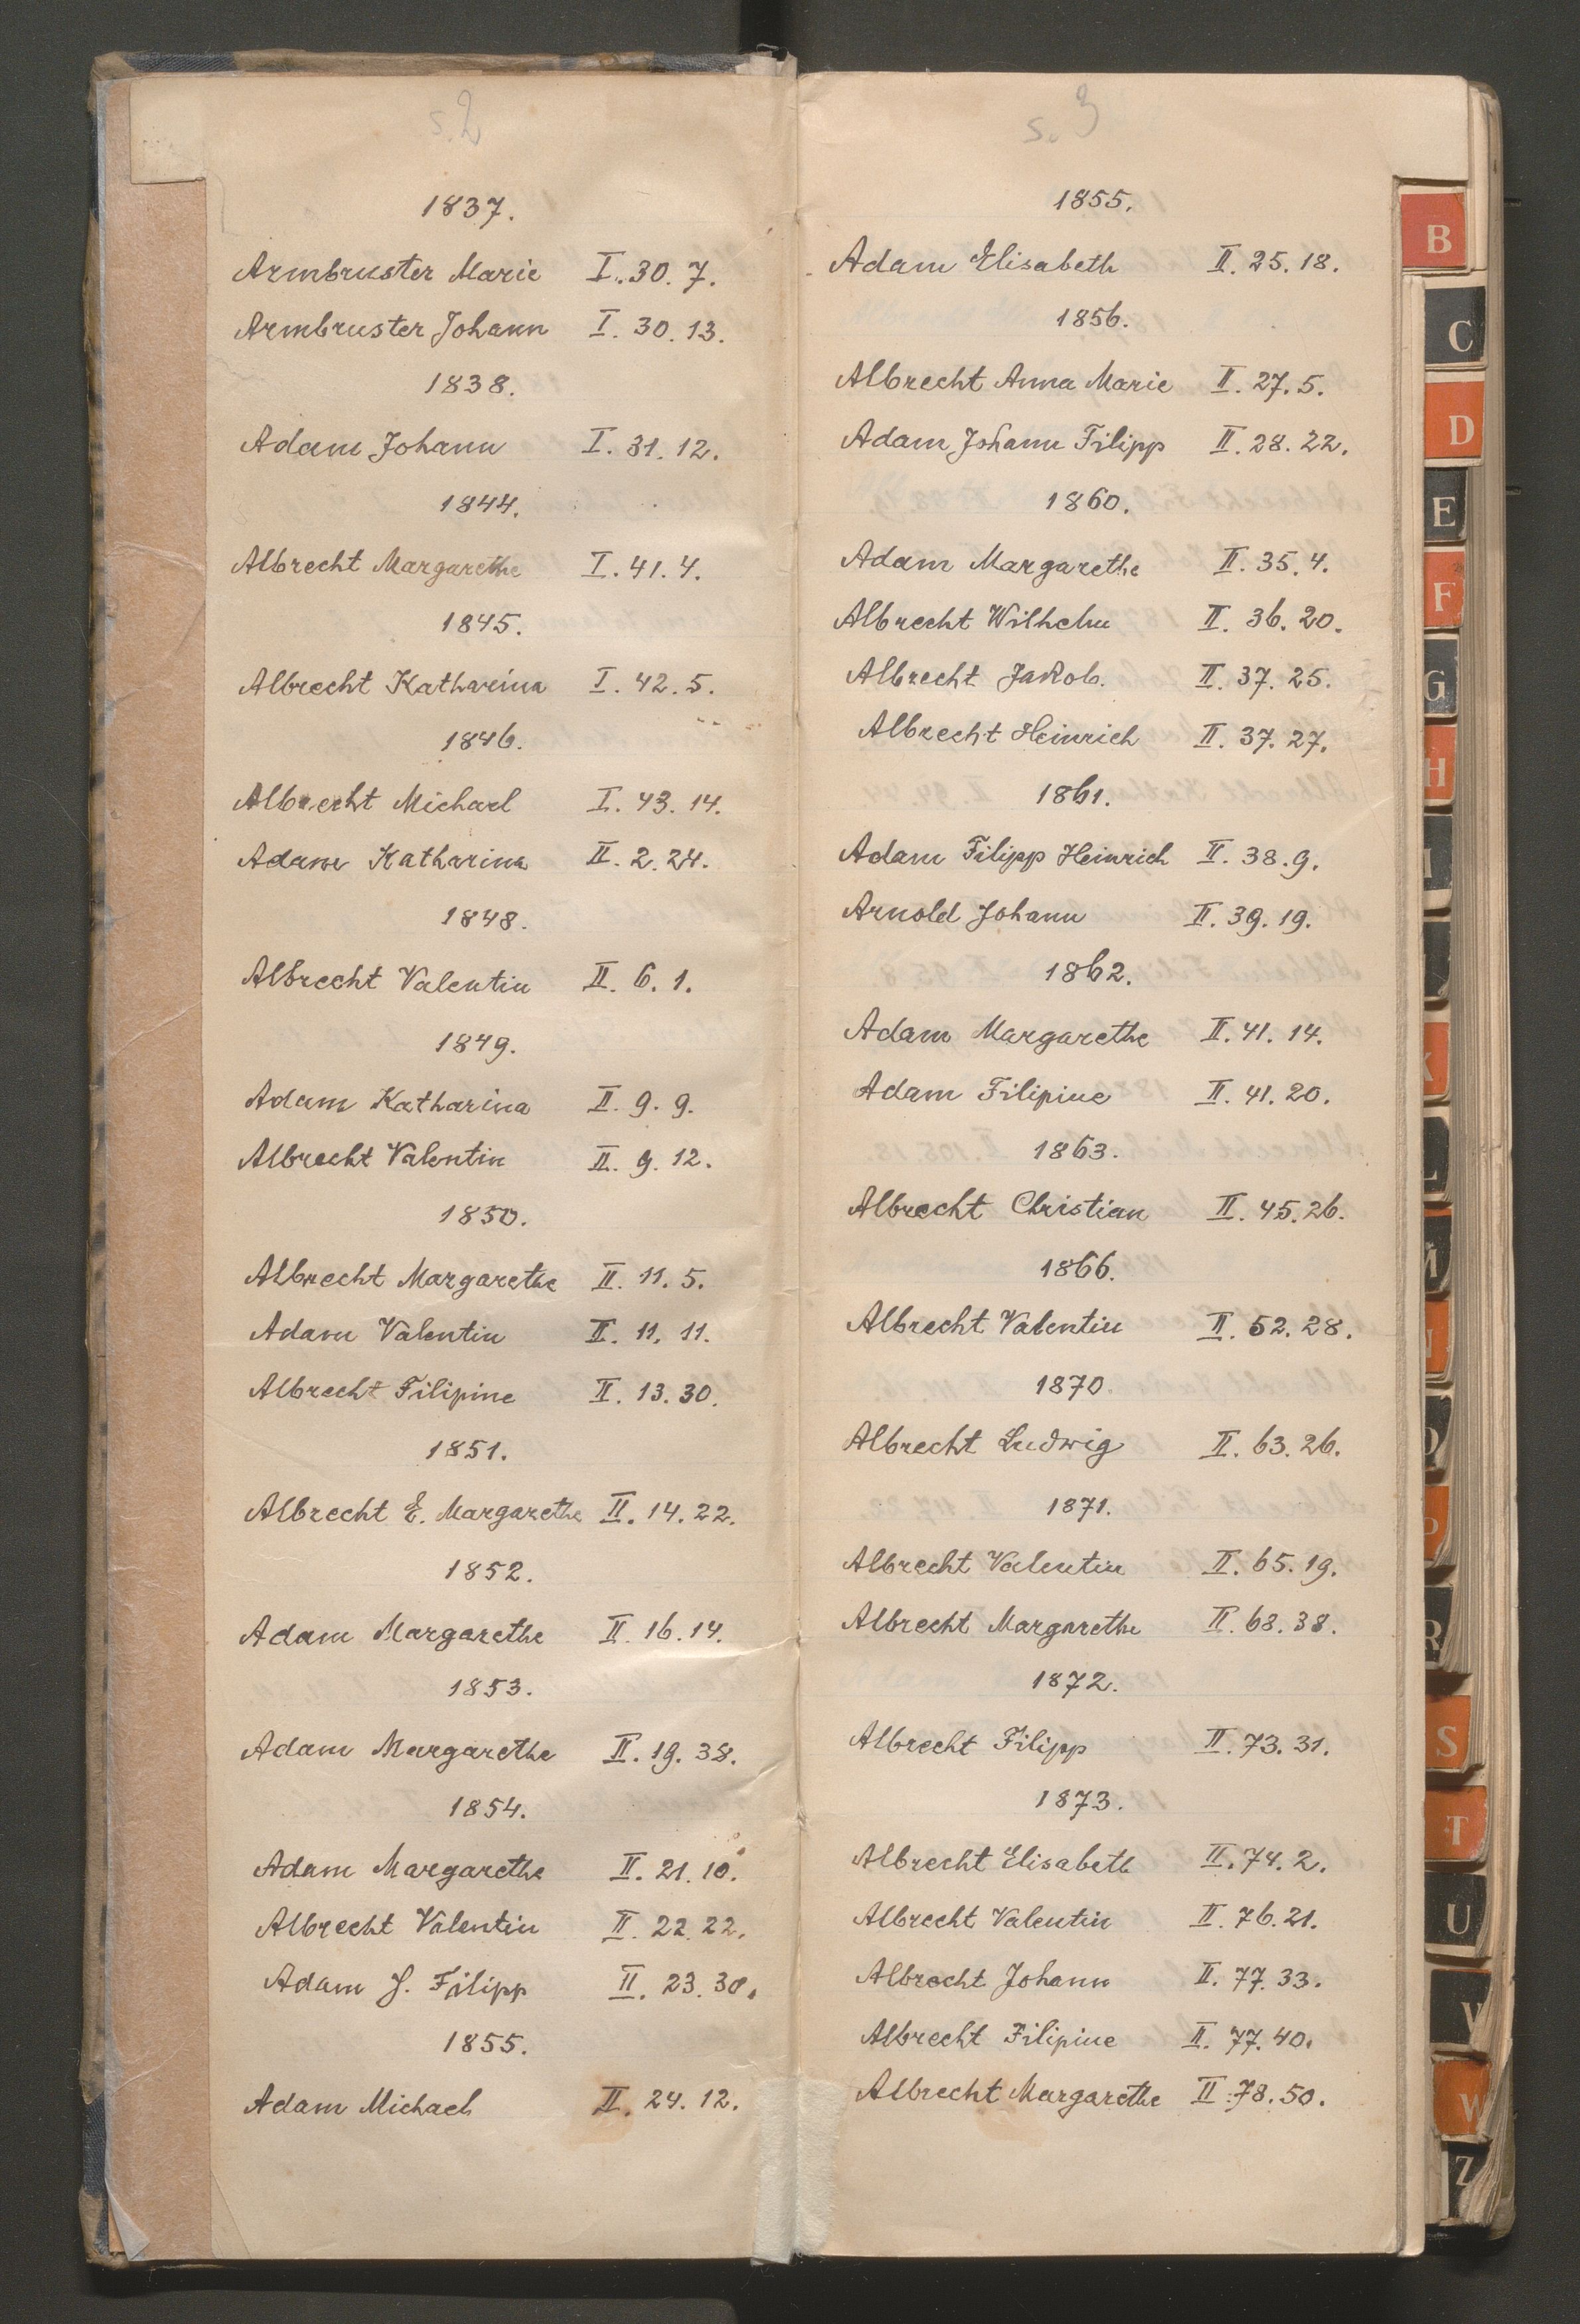 s. 2
1837.
Armbruster Marie I. 30. 7.
Armbruster Johann I. 30. 13.
1838.
Adam Johann I. 31. 12.
1844.
Albrecht Margarethe I. 41. 4.
1845.
Albrecht Katharina I. 42. 5.
1846.
Albrecht Michael I. 43. 14.
Adam Katharina II. 2. 24.
1848.
Albrecht Valentin II. 6. 1.
1849.
Adam Katharina II. 9. 9.
Albrecht Valentin II. 9. 12.
1850.
Albrecht Margarethe II. 11. 5.
Adam Valentin II. 11. 11.
Albrecht Filipine II. 13. 30.
1851.
Albrecht E. Margarethe II. 14. 22.
1852.
Adam Margarethe II. 16. 14.
1853.
Adam Margarethe II. 19. 38.
1854.
Adam Margarethe II. 21. 10.
Albrecht Valentin II. 22. 22.
Adam J. Filipp II. 23. 30.
1855.
Adam Michael II. 24. 12.
s. 3
1855.
Adam Elisabeth II. 25. 18.
1856.
Albrecht Anna Marie II. 27. 5.
Adam Johann Filipp II. 28. 22.
1860.
Adam Margarethe II. 35. 4.
Albrecht Wilhelm II. 36. 20.
Albrecht Jakob. II. 37. 25.
Albrecht Heinrich II. 37. 27.
1861.
Adam Filipp Heinrich II. 38. 9.
Arnold Johann II. 39. 19.
1862.
Adam Margarethe II. 41. 14.
Adam Filipine II. 41. 20.
1863.
Albrecht Christian II. 45. 26.
1866.
Albrecht Valentin II. 52. 28.
1870.
Albrecht Ludwig II. 63. 26.
1871.
Albrecht Valentin II. 65. 19.
Albrecht Margarethe II. 68. 38.
1872.
Albrecht Filipp II. 73. 31.
1873.
Albrecht Elisabeth II. 74. 2.
Albrecht Valentin II. 76. 21.
Albrecht Johann II. 77. 33.
Albrecht Filipine II. 77. 40.
Albrecht Margarethe II. 78. 50.
B
C
D
E
F
G
H
L
R
S
T
U
V
W
Z